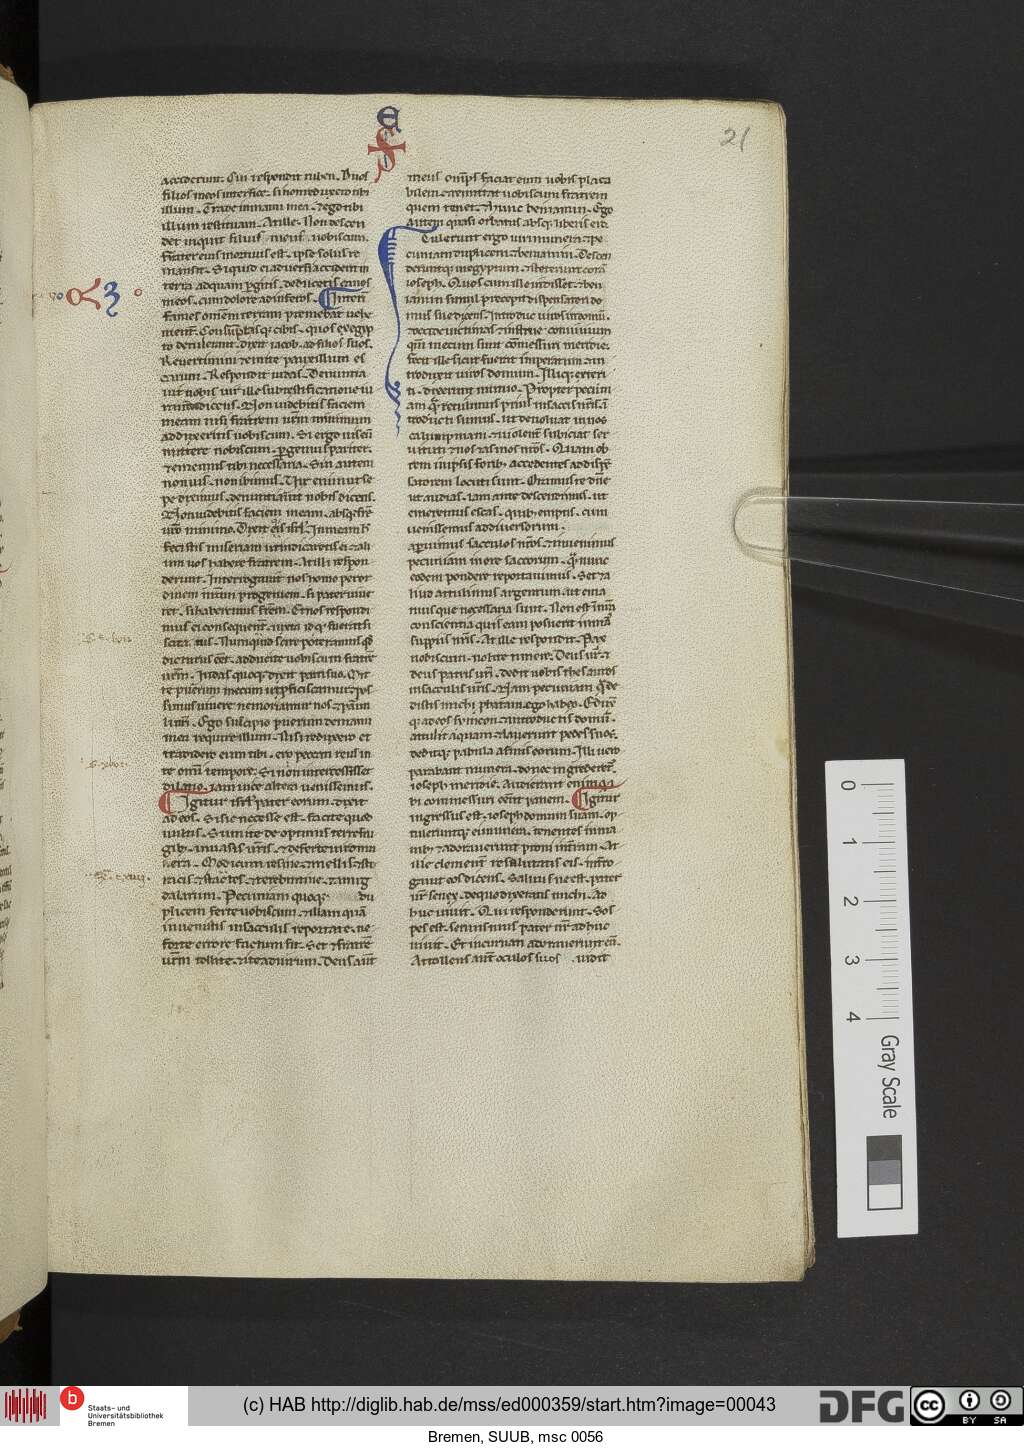 e
S
21
acciderunt. Cui respondit ruben. Duos
filios meos interfice. si non reduxero tibi
illum. Trade in manu mea. ⁊ ego tibi
illum restituam. At ille. Non descen
det inquit filius meus uobiscum.
Frater eius mortuus est. ipse solus re
mansit. Si quid ei aduersi acciderit in
terra ad quam pergitis. deducetis canos
meos. cum dolore ad inferos. Interī
fames omēm terram premebat uehe
menter. Consūptisq; cibis. quos ex egyp
to detulerant. dixit iacob. ad filios suos.
Reuertimini ⁊ emite pauxillum es
carum. Respondit iudas. Denuntia
uit nobis uir ille sub testificatione iu
randi dicens. Non uidebitis faciem
meam nisi fratrem urm minimum
adduxeritis uobiscum. Si ergo uis eū
mittere nobiscum. pergemus pariter.
⁊ ememus tibi necessaria. Sin autem
non uis. non ibimus. Vir enim ut se
pe diximus. denuntiauit nobis dicens.
Non uidebitis faciem meam. absq; fr̄e
uro minimo. Dixit eis isrl. In meam h̄
fecistis miseriam ut indicaretis ei ⁊ ali
um uos habere fratrem. At illi respon
derunt. Interrogauit nos homo per or
dinem nram progeniem. si pater uiue
ret. si haberemus frem. Et nos respondi
mus ei consequenter. iuxta id q̄ fuerat si
scitatus. Nunquid scire poteramus qd
dicturus eēt. adducite uobiscum fratrē
urm. Iudas quoq; dixit patri suo. Mit
te puerum mecum ut proficiscamur ⁊ pos
simus uiuere ne moriamur nos ⁊ paruu
li nri. Ego suscipio puerum de manu
mea require illum. Nisi reduxero et
tradidero eum tibi. ero peccati reus in
te omī tempore. Si non intercessisset
dilatio. iam uice altera uenissemus.
Igitur isrl pater eorum. dixit
ad eos. Si sic necesse est. facite quod
uultis. Sumite de optimis terre fru
gib; in uasis uris. ⁊ deferte uiro mu
nera. Modicum resine. ⁊ mellis. ⁊ sto
racis. ⁊ stactes. ⁊ terebintine. ⁊ amig
dalarum. Pecuniam quoq; du
plicem ferte uobiscum. ⁊ illam quā
inuenistis in sacculis reportate. ne
forte errore factum sit. Set ⁊ fratrē
urm tollite. ⁊ ite ad uirum. Deus aut̄
meus omps faciat eum uobis placa
bilem. ⁊ remittat uobiscum fratrem
quem tenet. ⁊ hunc beniamin. Ego
autem quasi orbatus absq; liberis ero.
Tulerunt ergo uiri munera. ⁊ pe
cuniam duplicem. ⁊ beniamin. Descen
deruntq; in egyptum. ⁊ steterunt corā
ioseph. Quos cum ille uidisset. ⁊ ben
iamin simul. precepit dispensatori do
mus sue dicens. Introduc uiros in domū.
⁊ occide uictimas. ⁊ instrue conuiuium
qm mecum sunt comessuri meridie.
Fecit ille sicut fuerat imperatum. ⁊ in
troduxit uiros domum. Illicq; exterri
ti. dixerunt mutuo. Propter pecuni
am q̄ retulimus prius in saccis nris. ī
troducti sumus. ut deuoluat in nos
calumpniam. ⁊ uiolent̄ subiciat ser
uituti ⁊ nos ⁊ asinos nros. Quam ob
rem in ipsis forib; accedentes ad dispē
satorem locuti sunt. Oramus te dn̄e
ut audias. iam ante descendimus. ut
emeremus escas. quib; emptis. cum
uenissemus ad diuersorium.
aperuimus sacculos nros. ⁊ inuenimus
pecuniam in ore saccorum. q̄ nunc
eodem pondere reportauimus. Set ⁊ a
liud attulimus argentum. ut ema
mus que necessaria sunt. Non est in nra
conscientia quis eam posuerit in mar
suppiis nris. At ille respondit. Pax
uobiscum. nolite timere. Deus ur ⁊
deus patris uri. dedit uobis thesauros
in sacculis uris. Nam pecuniam q̄ de
distis michi pbatam. ego habeo. Eduxit
q; ad eos symeon. ⁊ introductis domū.
attulit aquam. ⁊ lauerunt pedes suos.
deditq; pabula asinis eorum. Illi uero
parabant munera. donec ingrederet̄.
ioseph meridie. Audierant enim q̄ i
bi comessuri eēnt panem. Igitur
ingressus est ioseph domum suam. op
tuleruntq; ei munera. tenentes in ma
nib; ⁊ adorauerunt proni in terram. At
ille clement̄ resalutatis eis. intro
gauit eos dicens. Saluus ne est pater
ur senex. de quo dixeratis michi. Ad
huc uiuit. Qui responderunt. Sos
pes est. seruus tuus pater nr adhuc
uiuit. Et incuruati adorauerunt eū.
Attollens aut̄ oculos suos uidit
0
1
2
3
4
Gray Scale
b
Staats- und
Universitätsbibliothek
Bremen
(c) HAB http://diglib.hab.de/mss/ed000359/start.htm?image=00043
DFG
cc
BY SA
Bremen, SUUB, msc 0056